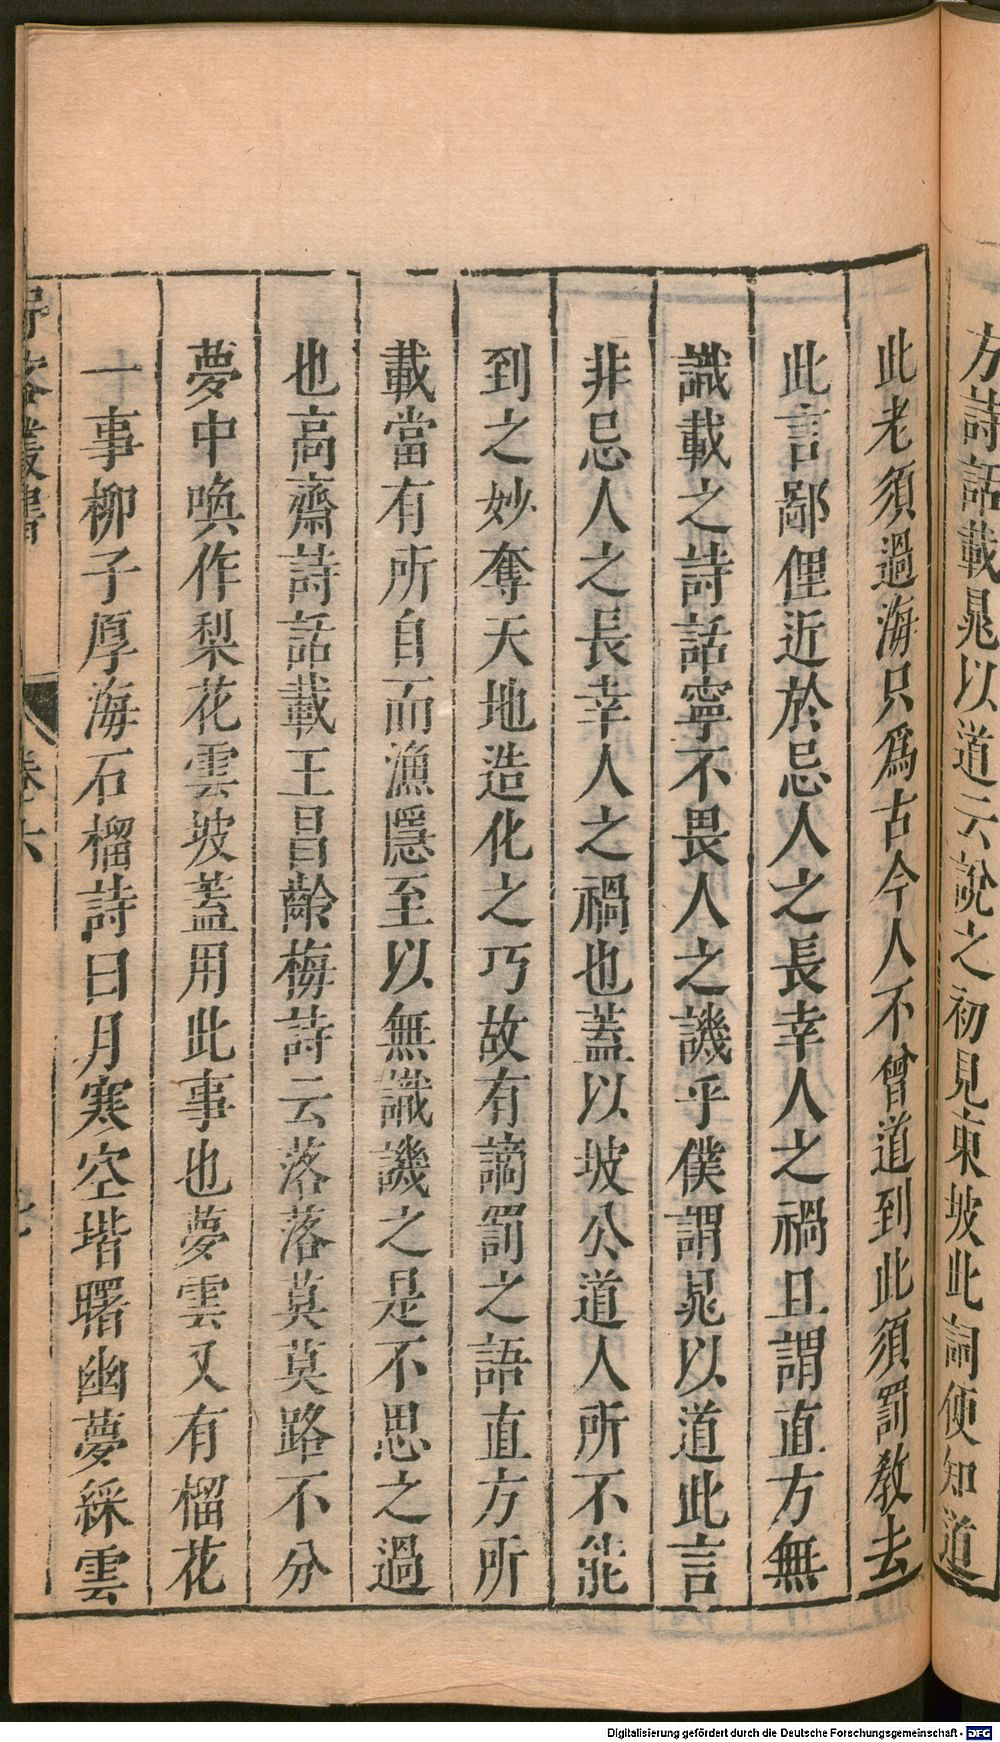 方詩話載晁以道云說之初見東坡此詞便知道
此老須過海只爲古今人不曾道到此須罰教去
此言鄙俚近於忌人之長幸人之禍且謂直方無
識載之詩話寧不畏人之譏乎僕謂晁以道此言
非忌人之長幸人之禍也蓋以坡公道人所不能
到之妙奪天地造化之巧故有謫罰之語直方所
載當有所自而漁隱至以無識譏之是不思之過
也高齋詩話載王昌齡梅詩云落落莫莫路不分
夢中喚作梨花雲坡蓋用此事也夢雲又有榴花
一事柳子厚海石榴詩曰月寒空堦曙幽夢綵雲
野客叢書
卷六
Digitalisierung gefördert durch die Deutsche Forschungsgemeinschaft - DFG